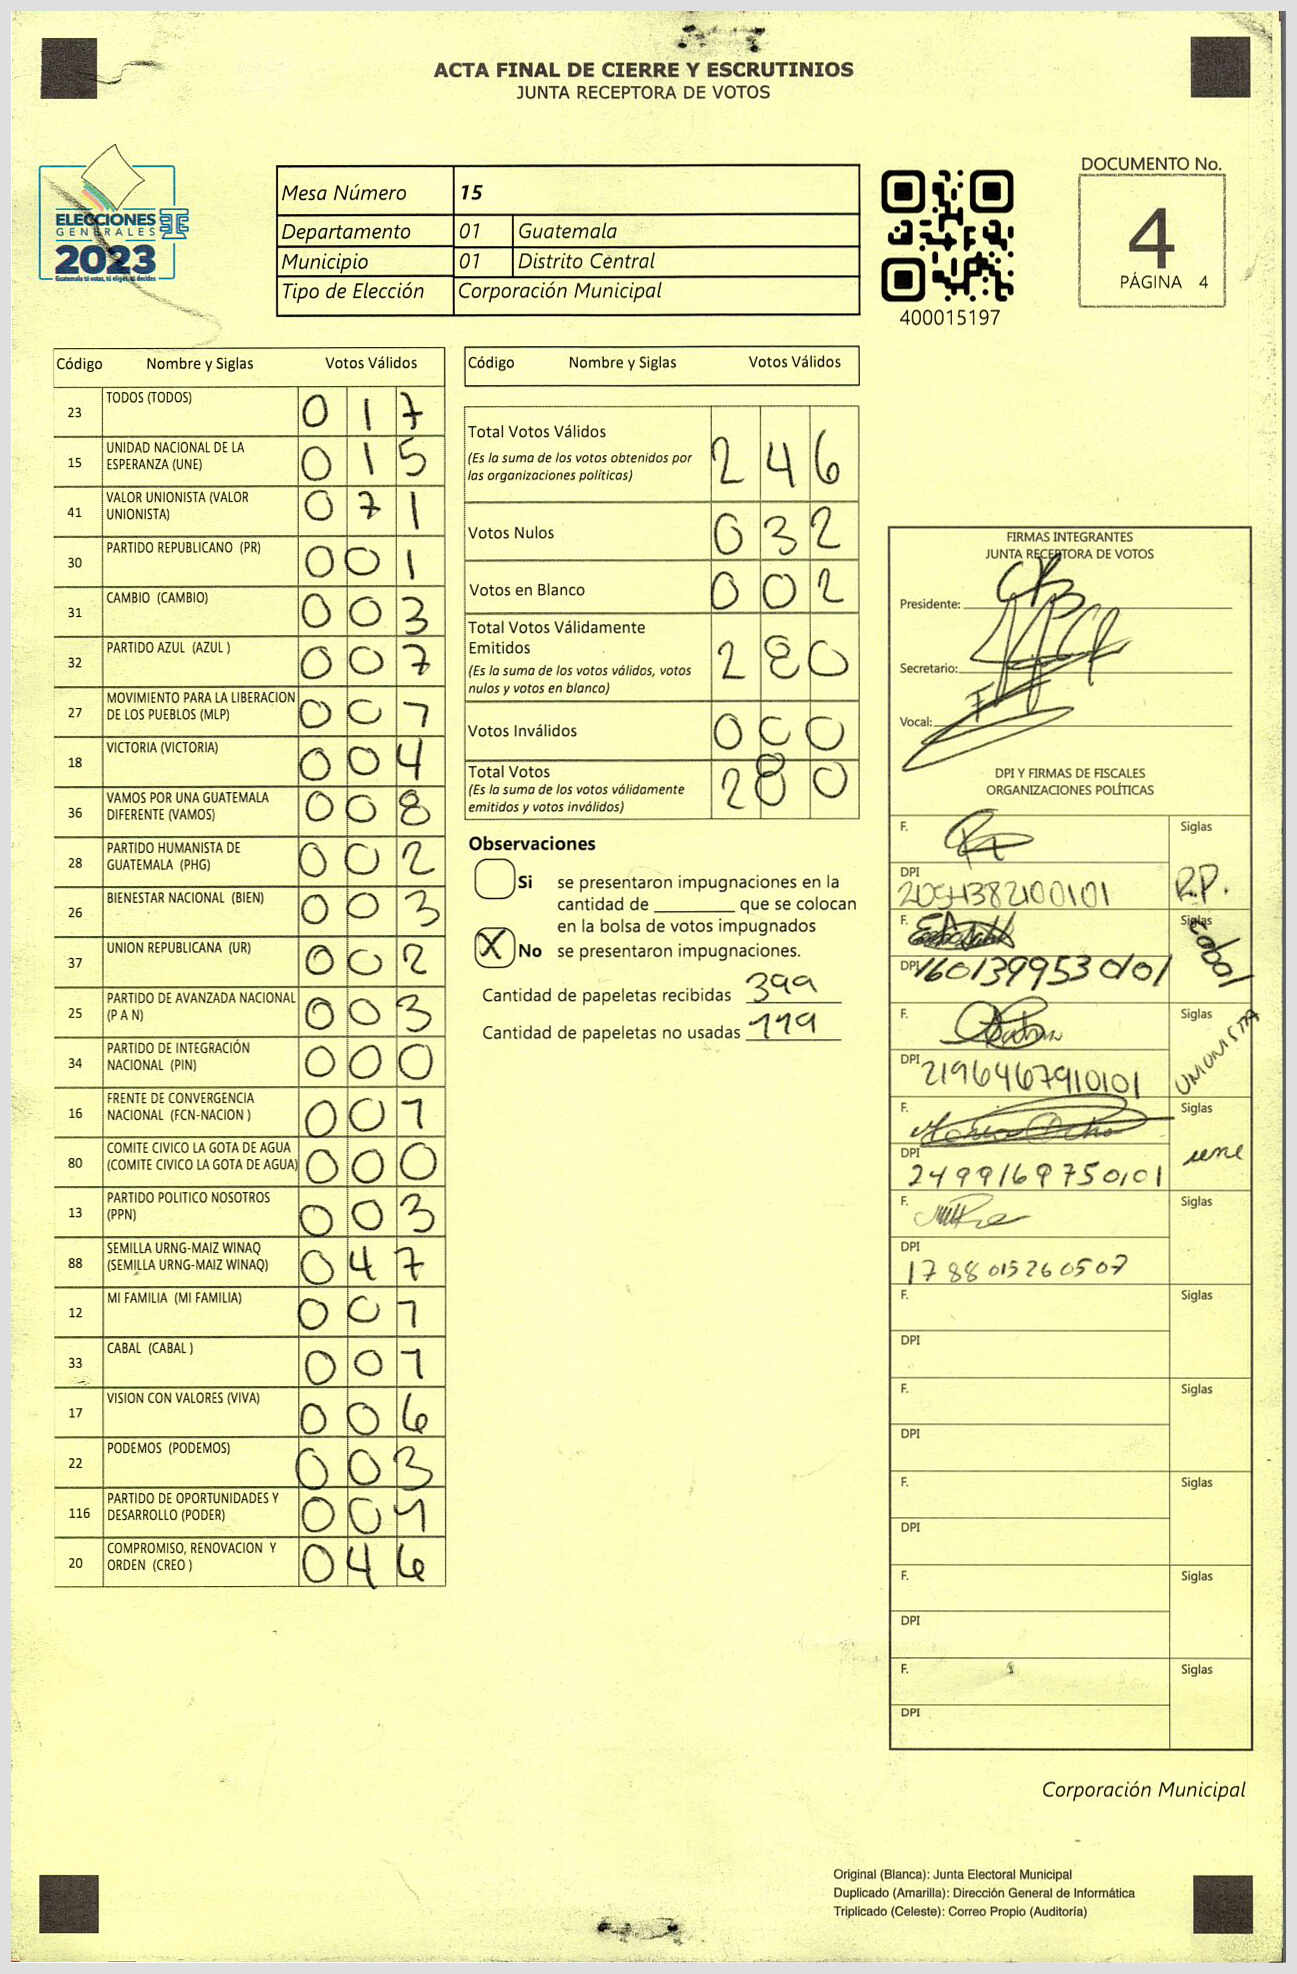 ACTA FINAL DE CIERRE Y ESCRUTINIOS
JUNTA RECEPTORA DE VOTOS
ELECCIONES
GENERALES
2023
Guatemala tú votas, tú eliges, tú decides
Mesa Número 15
Departamento 01 Guatemala
Municipio 01 Distrito Central
Tipo de Elección Corporación Municipal
400015197
DOCUMENTO No.
4
PÁGINA 4
Código Nombre y Siglas Votos Válidos
23 TODOS (TODOS) 0 1 7
15 UNIDAD NACIONAL DE LA ESPERANZA (UNE) 0 1 5
41 VALOR UNIONISTA (VALOR UNIONISTA) 0 7 1
30 PARTIDO REPUBLICANO (PR) 0 0 1
31 CAMBIO (CAMBIO) 0 0 3
32 PARTIDO AZUL (AZUL ) 0 0 7
27 MOVIMIENTO PARA LA LIBERACION DE LOS PUEBLOS (MLP) 0 0 1
18 VICTORIA (VICTORIA) 0 0 4
36 VAMOS POR UNA GUATEMALA DIFERENTE (VAMOS) 0 0 8
28 PARTIDO HUMANISTA DE GUATEMALA (PHG) 0 0 2
26 BIENESTAR NACIONAL (BIEN) 0 0 3
37 UNION REPUBLICANA (UR) 0 0 2
25 PARTIDO DE AVANZADA NACIONAL (P A N) 0 0 3
34 PARTIDO DE INTEGRACIÓN NACIONAL (PIN) 0 0 0
16 FRENTE DE CONVERGENCIA NACIONAL (FCN-NACION ) 0 0 1
80 COMITE CIVICO LA GOTA DE AGUA (COMITE CIVICO LA GOTA DE AGUA) 0 0 0
13 PARTIDO POLITICO NOSOTROS (PPN) 0 0 3
88 SEMILLA URNG-MAIZ WINAQ (SEMILLA URNG-MAIZ WINAQ) 0 4 7
12 MI FAMILIA (MI FAMILIA) 0 0 1
33 CABAL (CABAL ) 0 0 1
17 VISION CON VALORES (VIVA) 0 0 6
22 PODEMOS (PODEMOS) 0 0 3
116 PARTIDO DE OPORTUNIDADES Y DESARROLLO (PODER) 0 0 1
20 COMPROMISO, RENOVACION Y ORDEN (CREO ) 0 4 6
Código Nombre y Siglas Votos Válidos
Total Votos Válidos 2 4 6
(Es la suma de los votos obtenidos por
las organizaciones políticas)
Votos Nulos 0 3 2
Votos en Blanco 0 0 2
Total Votos Válidamente
Emitidos 2 8 0
(Es la suma de los votos válidos, votos
nulos y votos en blanco)
Votos Inválidos 0 0 0
Total Votos 2 8 0
(Es la suma de los votos válidamente
emitidos y votos inválidos)
Observaciones
Si se presentaron impugnaciones en la
cantidad de ________ que se colocan
en la bolsa de votos impugnados
X No se presentaron impugnaciones.
Cantidad de papeletas recibidas 399
Cantidad de papeletas no usadas 119
FIRMAS INTEGRANTES
JUNTA RECEPTORA DE VOTOS
Presidente:
Secretario:
Vocal:
DPI Y FIRMAS DE FISCALES
ORGANIZACIONES POLÍTICAS
F. Siglas
DPI R.P.
F. Siglas
DPI 1601399530101
F. Siglas
DPI 2196467910101 UNIONISTA
F. Siglas
DPI 2499169750101 une
F. Siglas
DPI 1788015260507
F. Siglas
DPI
F. Siglas
DPI
F. Siglas
DPI
F. Siglas
DPI
F. Siglas
DPI
Corporación Municipal
Original (Blanca): Junta Electoral Municipal
Duplicado (Amarilla): Dirección General de Informática
Triplicado (Celeste): Correo Propio (Auditoría)